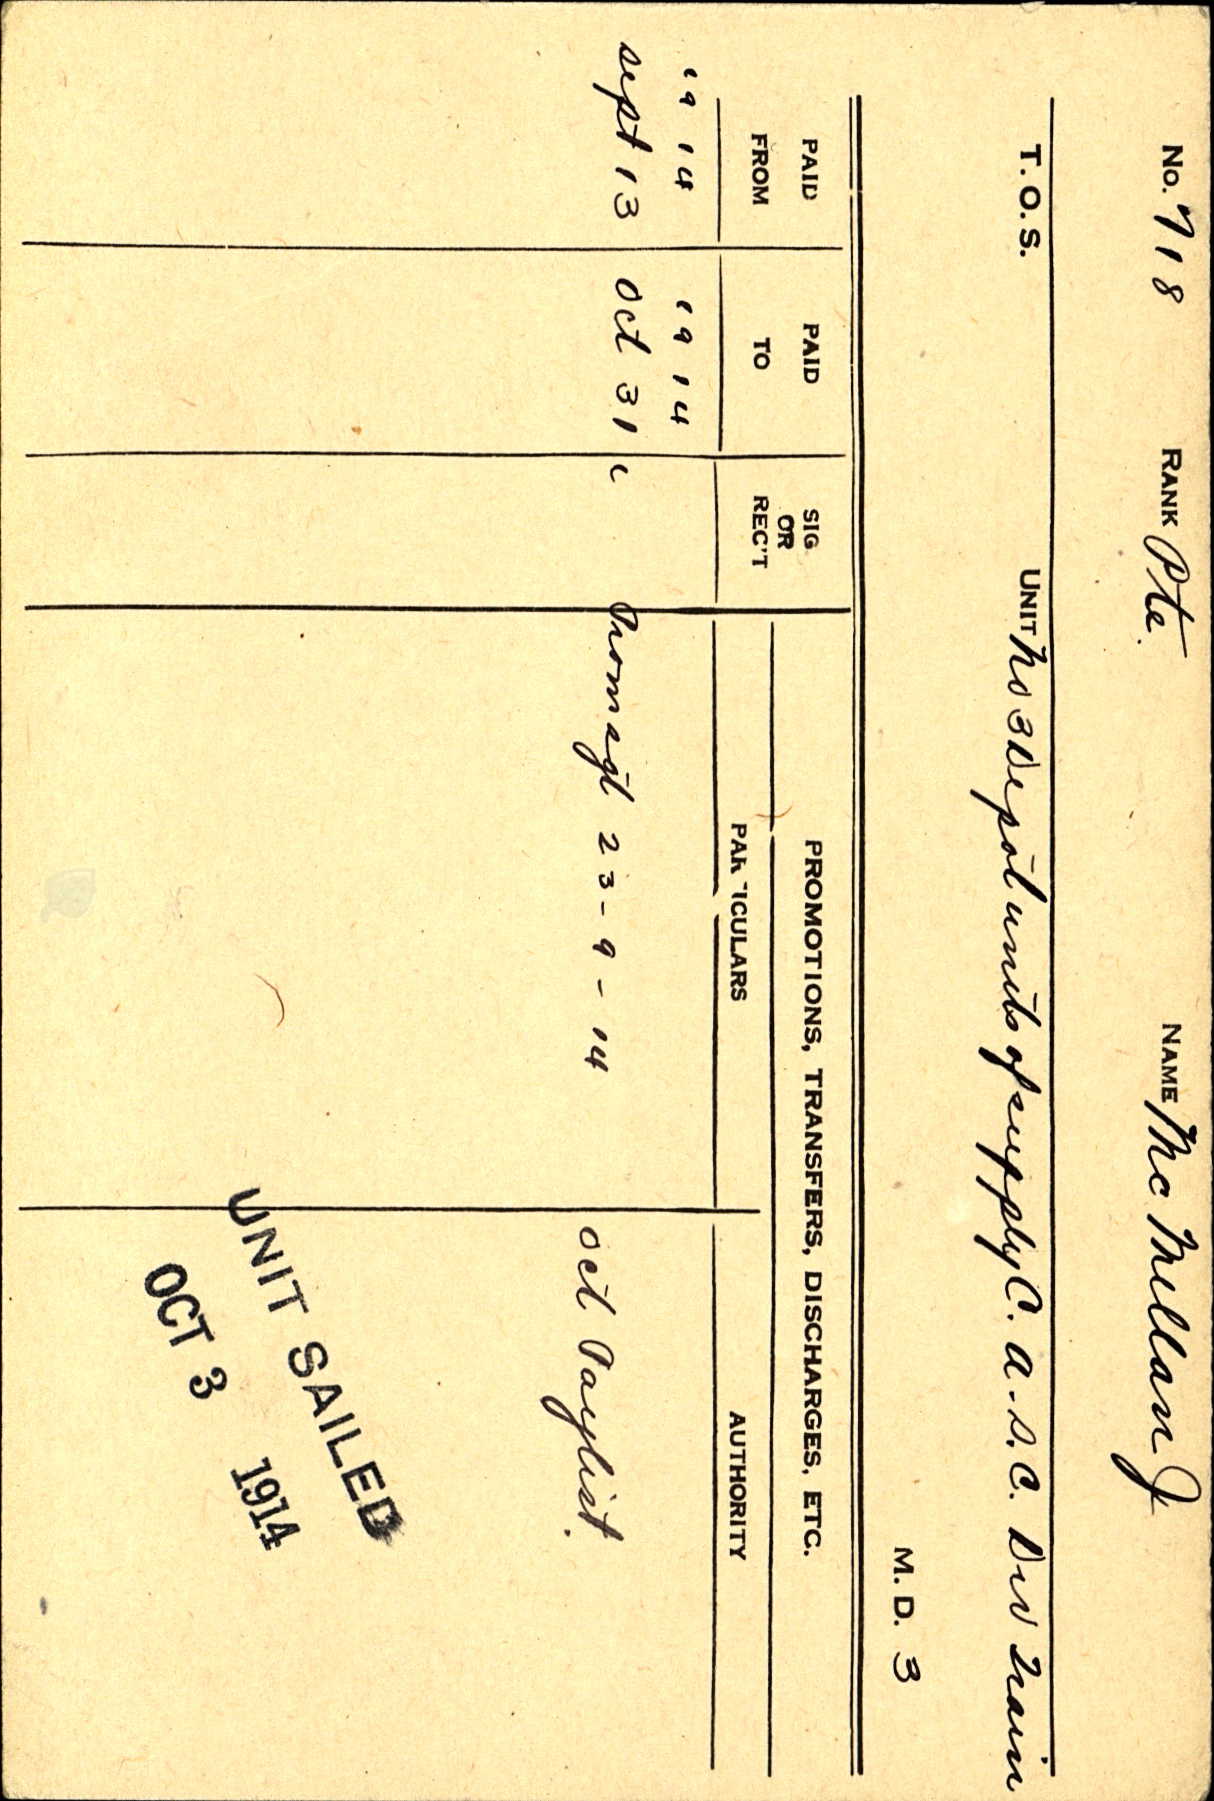 No. 718 RANK Pte. NAME McMillan J
T. O. S. UNIT No 3 Depot units of supply C. A. S. C. Div Train
M. D. 3
PAID FROM PAID TO SIG OR REC'T PROMOTIONS, TRANSFERS, DISCHARGES, ETC.
PARTICULARS AUTHORITY
1914 1914
Sept 13 Oct 31 c Prom sgt 23-9-14 Oct Paylist.
UNIT SAILED
OCT 3 1914